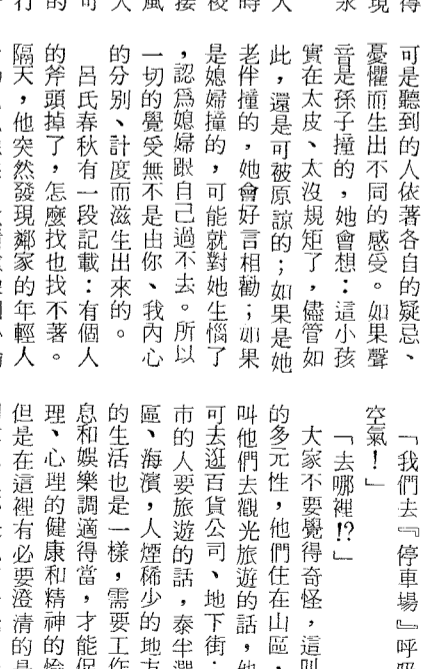 得
現
人
時
校
接
風
可
的
行
可是聽到的人依著各自的疑忌、
憂懼而生出不同的感受。如果聲
音是孫子撞的，她會想：這小孩
實在太皮、太沒規矩了，儘管如
此，還是可被原諒的；如果是她
老伴撞的，她會好言相勸；如果
是媳婦撞的，可能就對她生惱了
，認爲媳婦跟自己過不去。所以
一切的覺受無不是由你、我內心
的分別、計度而滋生出來的。
呂氏春秋有一段記載：有個人
的斧頭掉了，怎麼找也找不著。
隔天，他突然發現鄰家的年輕人
「我們去『停車場』呼
空氣！」
「去哪裡!?」
大家不要覺得奇怪，這叫
的多元性，他們住在山區，
叫他們去觀光旅遊的話，他
可去逛百貨公司、地下街；
市的人要旅遊的話，泰半選
區、海濱，人煙稀少的地方
的生活也是一樣，需要工作
息和娛樂調適得當，才能保
理、心理的健康和精神的愉
但是在這裡有必要澄清的是